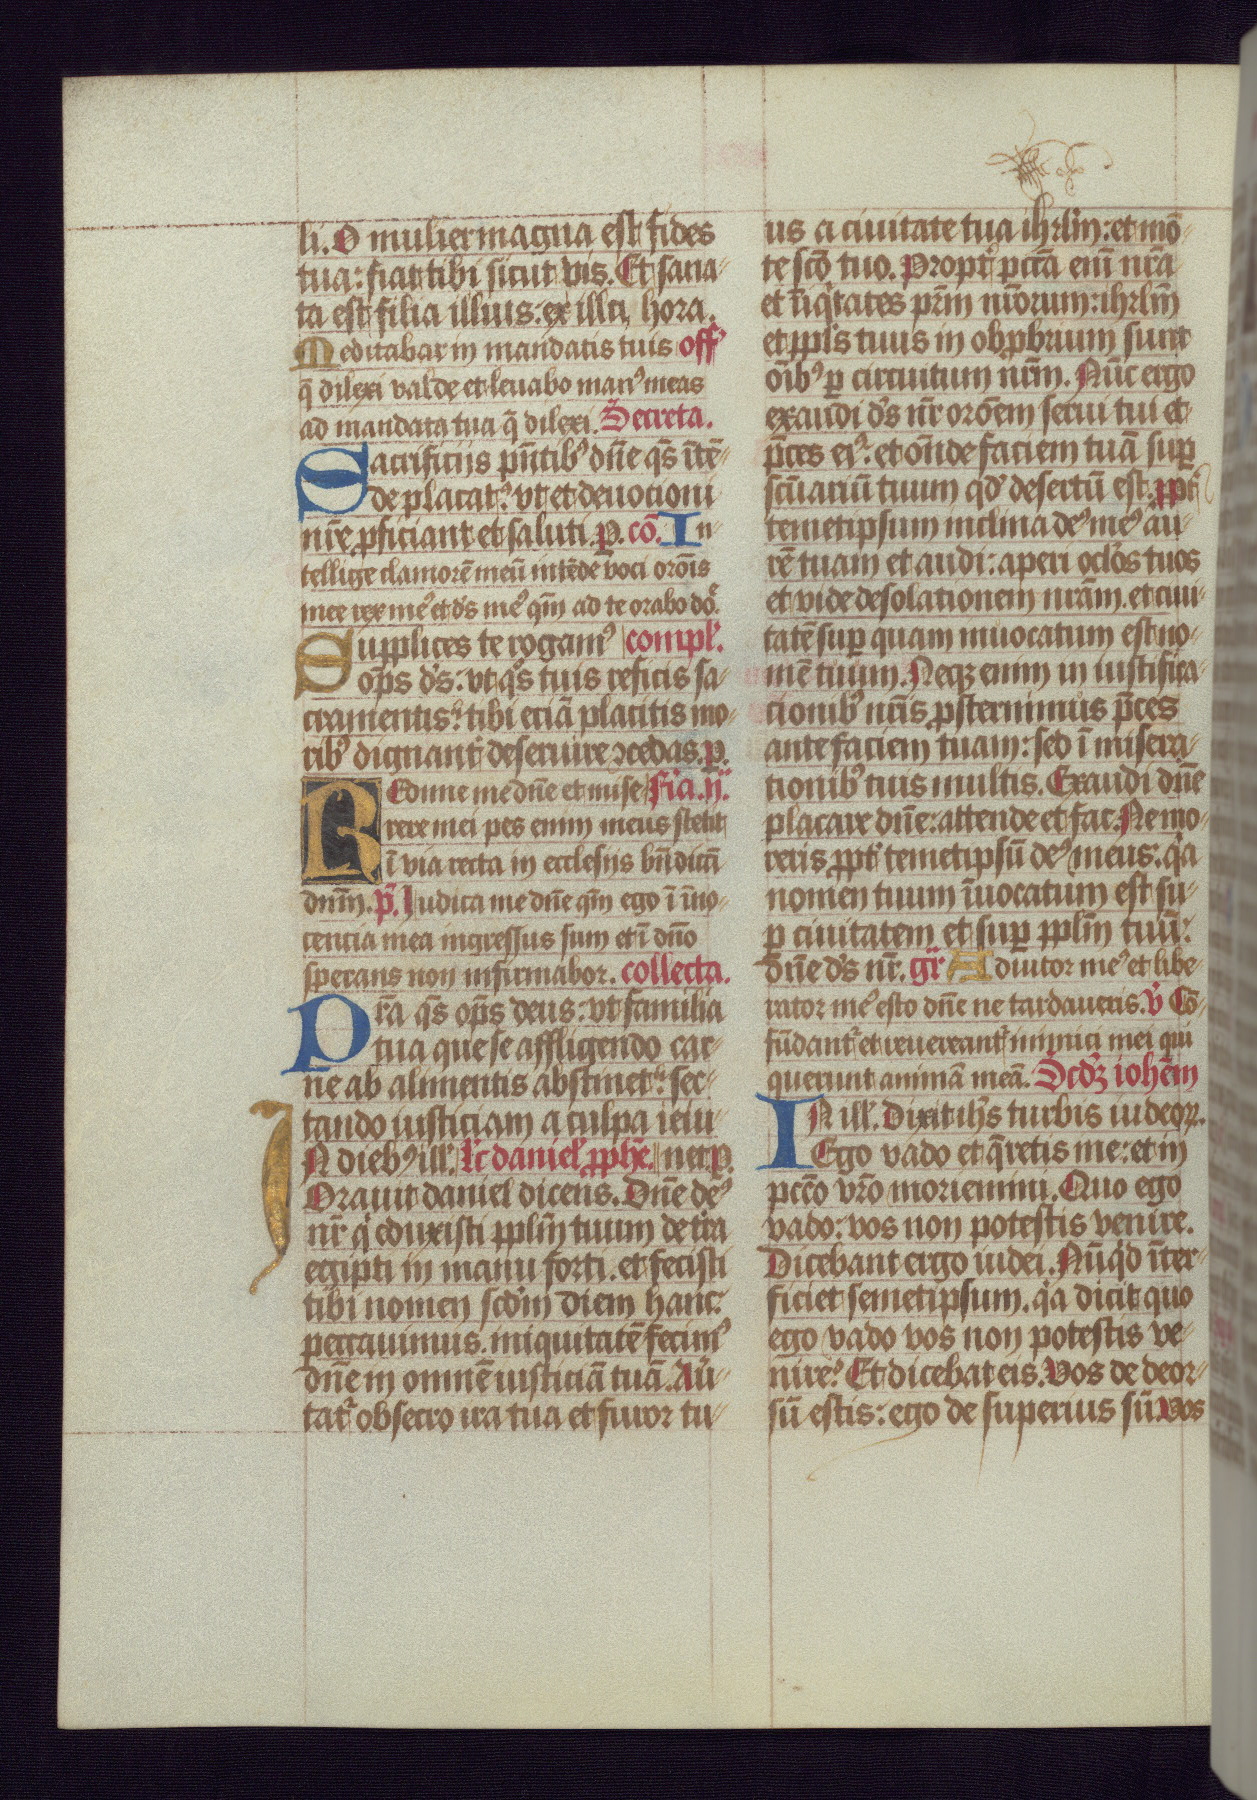 li. O mulier magna est fides
tua: fiat tibi sicut vis. Et sana-
ta est filia illius: ex illa hora.
Meditabar in mandatis tuis off
q̄ dilexi valde et levabo man⁹ meas
ad mandata tua q̄ dilexi. Secreta.
Sacrificiis pn̄tib⁹ dn̄e qs̄ ītē-
de placat⁹: vt et devocioni
nr̄e ꝓficiant et saluti. p. cō. In-
tellige clamorē meū intēde voci orōis
mee rex me⁹ et ds̄ me⁹ qm̄ ad te orabo dō.
Supplices te rogam⁹ compl̄.
op̄s ds̄: vt qs̄ tuis reficis sa-
cramentis: tibi eciā placitis mo-
rib⁹ dignant̄ deservire ꝯcedas. p.
Redime me dn̄e et mise fīa. ii.
rere mei pes enim meus stetit
ī via recta in ecclesiis bn̄dicā
dnm̄. p̄. Iudica me dn̄e qm̄ ego ī īno-
cencia mea ingressus sum et ī dn̄o
sperans non infirmabor. collecta.
Pr̄a qs̄ op̄s deus: vt familia
tua que se affligendo car-
ne ab alimentis abstinet: sec-
tando iusticiam a culpa ieiu-
IN dieb⁹ ill̄. lc̄ daniel̄ ꝓphē. net p.
Oravit daniel dicens. Dn̄e de⁹
nr̄ q̄ eduxisti ppl̄m tuum de tr̄a
egipti in manu forti. et fecisti
tibi nomen scd̄m diem hanc:
peccavimus. iniquitatē fecim⁹
dn̄e in omnē iusticiā tuā. Av̄-
tat̄ obsecro ira tua et furor tu-
us a civitate tua ihrl̄m: et mō-
te scō tuo. Propt̄ pctā em̄ nr̄a
et īiq̄tates pr̄m nr̄orum: ihrl̄m
et ppl̄s tuus in obꝓbrium sunt
oīb⁹ p circuitum nr̄m. Nūc ergo
exaudi ds̄ nr̄ oroēm servi tui et
p̄ces ei⁹: et on̄de faciem tuā sup
scūariū tuum qd̄ desertū est. ppt̄
temetipsum inclina de⁹ me⁹ au-
rē tuam et audi: aperi oclo̅s tuos
et vide desolationem nr̄am. et civi-
tatē sup quam invocatum est no-
mē tuum. Neqꝫ enim in iustifica-
cionib⁹ nr̄is ꝓsternimus p̄ces
ante faciem tuam: sed ī misera-
tionib⁹ tuis multis. Exaudi dn̄e
placare dn̄e: attende et fac. Ne mo-
reris ppt̄ temetipsū de⁹ meus: q̄a
nomen tuum īvocatum est su-
p civitatem et sup ppl̄m tuū:
dn̄e ds̄ nr̄. gr̄ Adiutor me⁹ et libe-
rator me⁹ esto dn̄e ne tardaveris. v̄ Cō-
fūdant̄ et revereant̄ inimici mei qui
querunt animā meā. Scd̄ꝫ iohēm
IN ill̄. Dixit ihs̄ turbis iudeoꝝ.
Ego vado et q̄retis me: et in
pccō vr̄o moriemini. Quo ego
vado: vos non potestis venire.
Dicebant ergo iudei. Nūq̄d īter-
ficiet semetipsum. q̄a dicit quo
ego vado vos non potestis ve-
nire? Et dicebat eis. Vos de deor-
sū estis: ego de superius sū. Vos